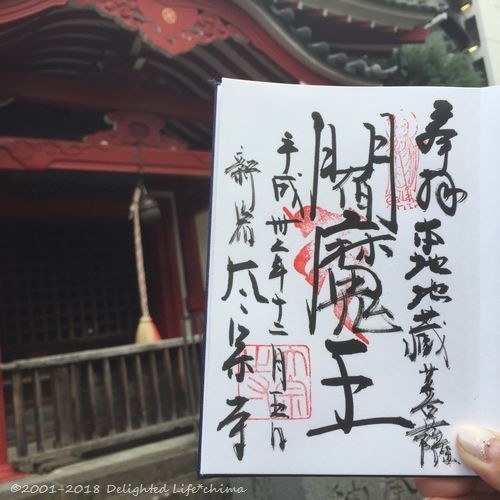 奉拝
本地地蔵菩薩
閻魔王
平成卅年十二月五日
新宿太宗寺
©2001-2018 Delighted Life*chima